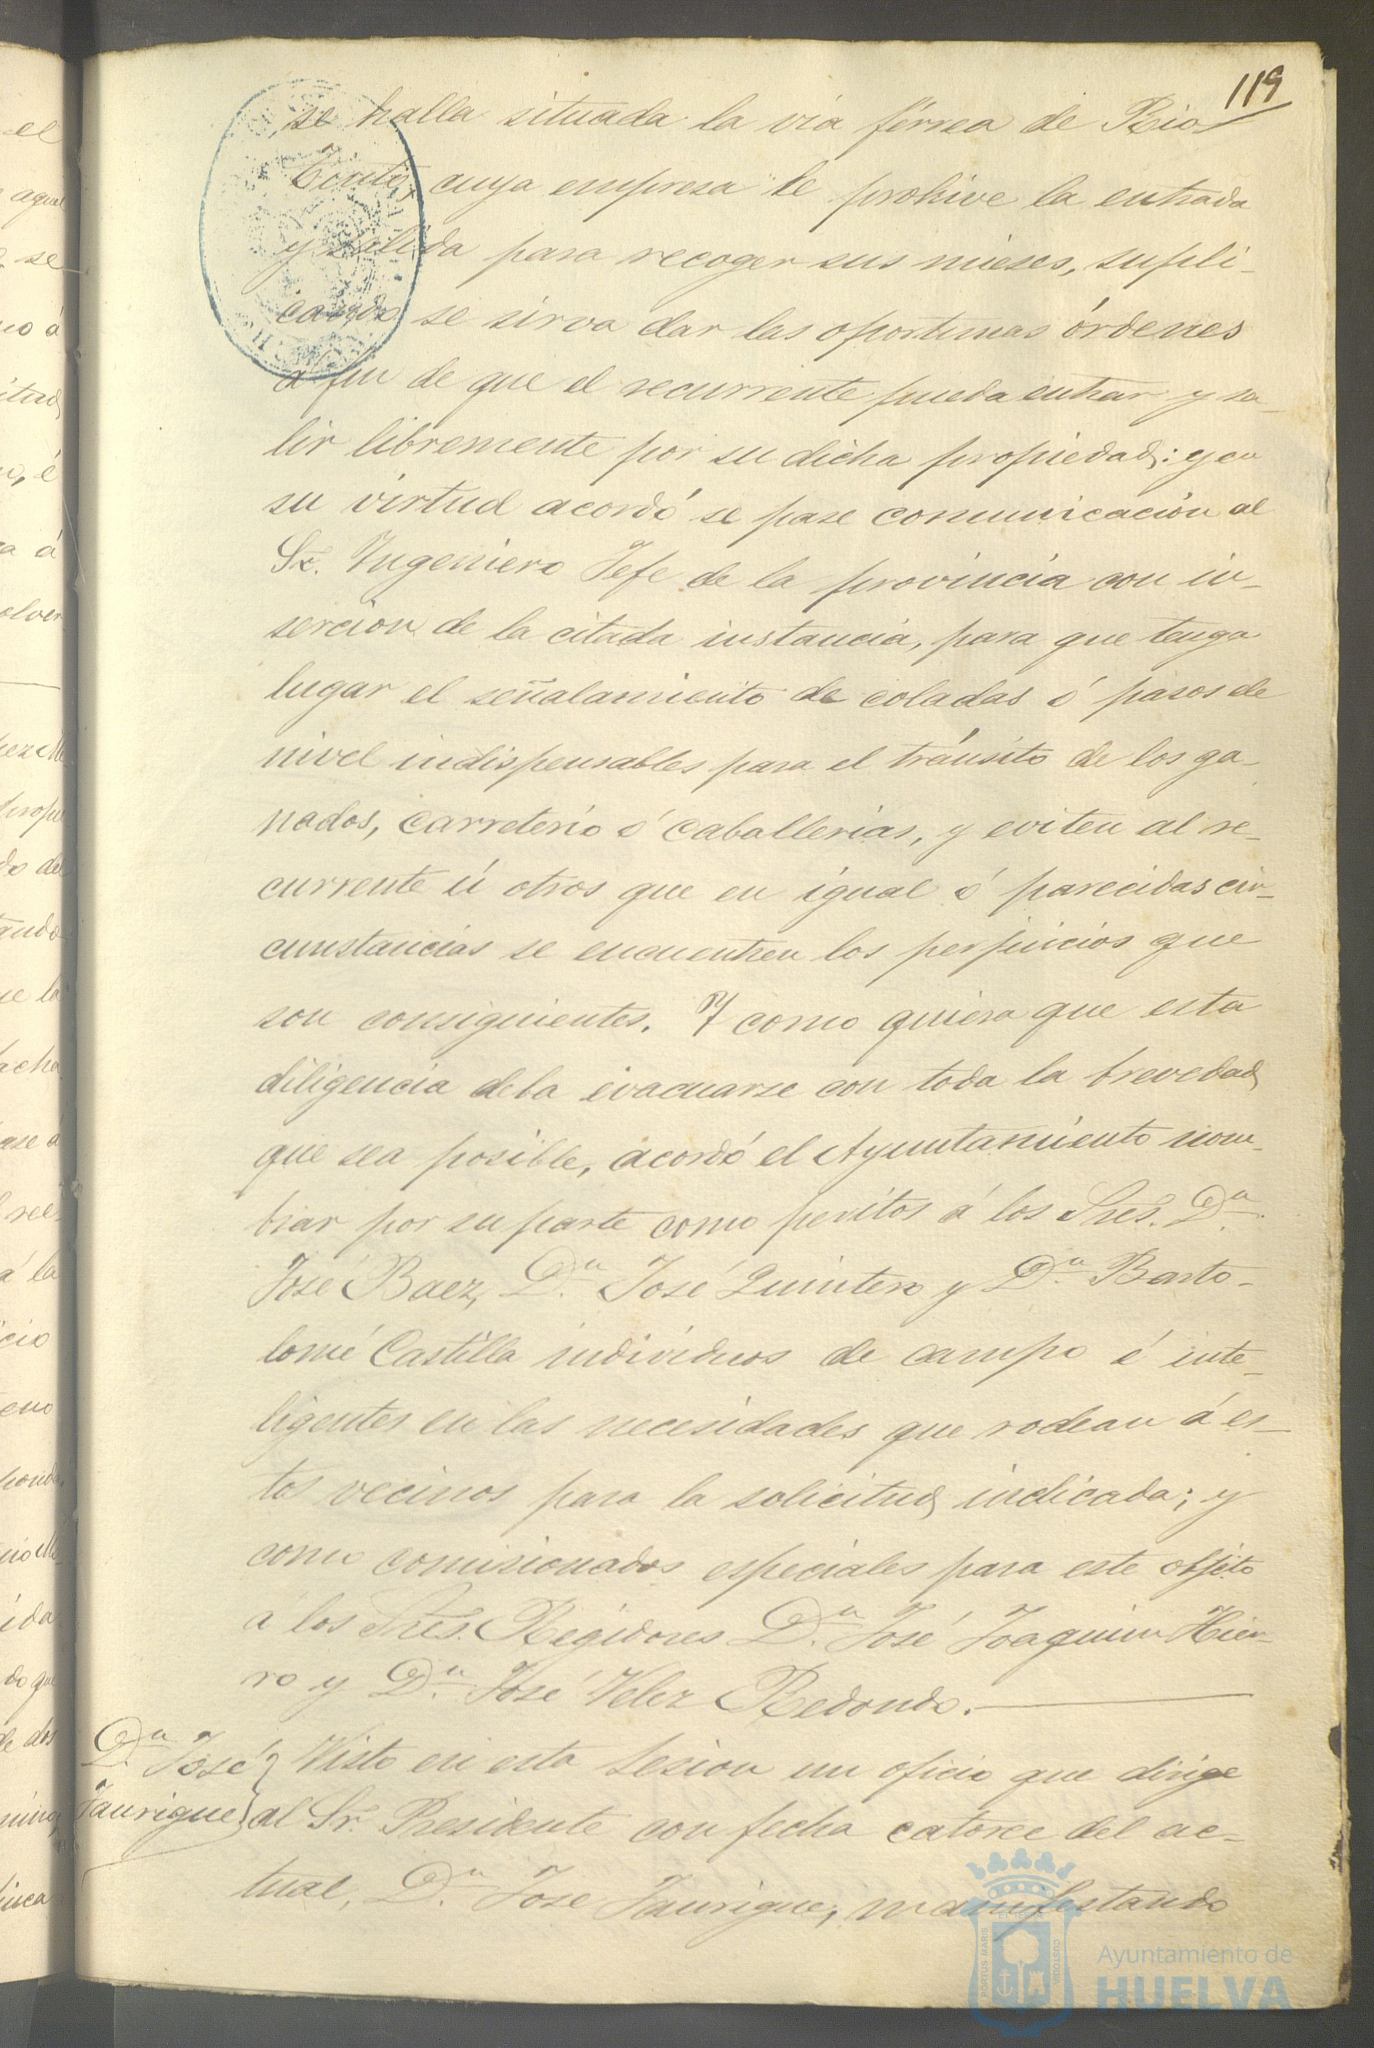 119
se halla situada la via férrea de Rio
Tinto, cuya empresa le prohive la entrada
y salida para recoger sus mieses, supli-
cando se sirva dar las oportunas órdenes
a fin de que el recurrente pueda entrar y sa-
lir libremente por su dicha propiedad: y en
su virtud acordó se pase comunicación al
Sr. Ingeniero Jefe de la provincia con in-
sercion de la citada instancia, para que tenga
lugar el señalamiento de coladas ó pasos de
nivel indispensables para el tránsito de los ga-
nados, carreterio ó caballerias, y eviten al re-
currente ú otros que en igual ó parecidas cir-
cunstancias se encuentren los perjuicios que
son consiguientes. Y como quiera que esta
diligencia deba evacuarse con toda la brevedad
que sea posible, acordó el Ayuntamiento nom-
brar por su parte como peritos á los Sres. Dn.
José Baez, Dn. José Quintero y Dn. Barto-
lomé Castilla individuos de campo é inte-
ligentes en las necesidades que rodean á es-
tos vecinos para la solicitud indicada; y
como comisionados especiales para este objeto
á los Sres. Regidores Dn. José Joaquin Hier-
ro y Dn. José Velez Redondo.
Dn. José
Jaurigue
Visto en esta sesion un oficio que dirige
al Sr. Presidente con fecha catorce del ac-
tual, Dn. Jose Jaurigue, manifestando
Ayuntamiento de
HUELVA